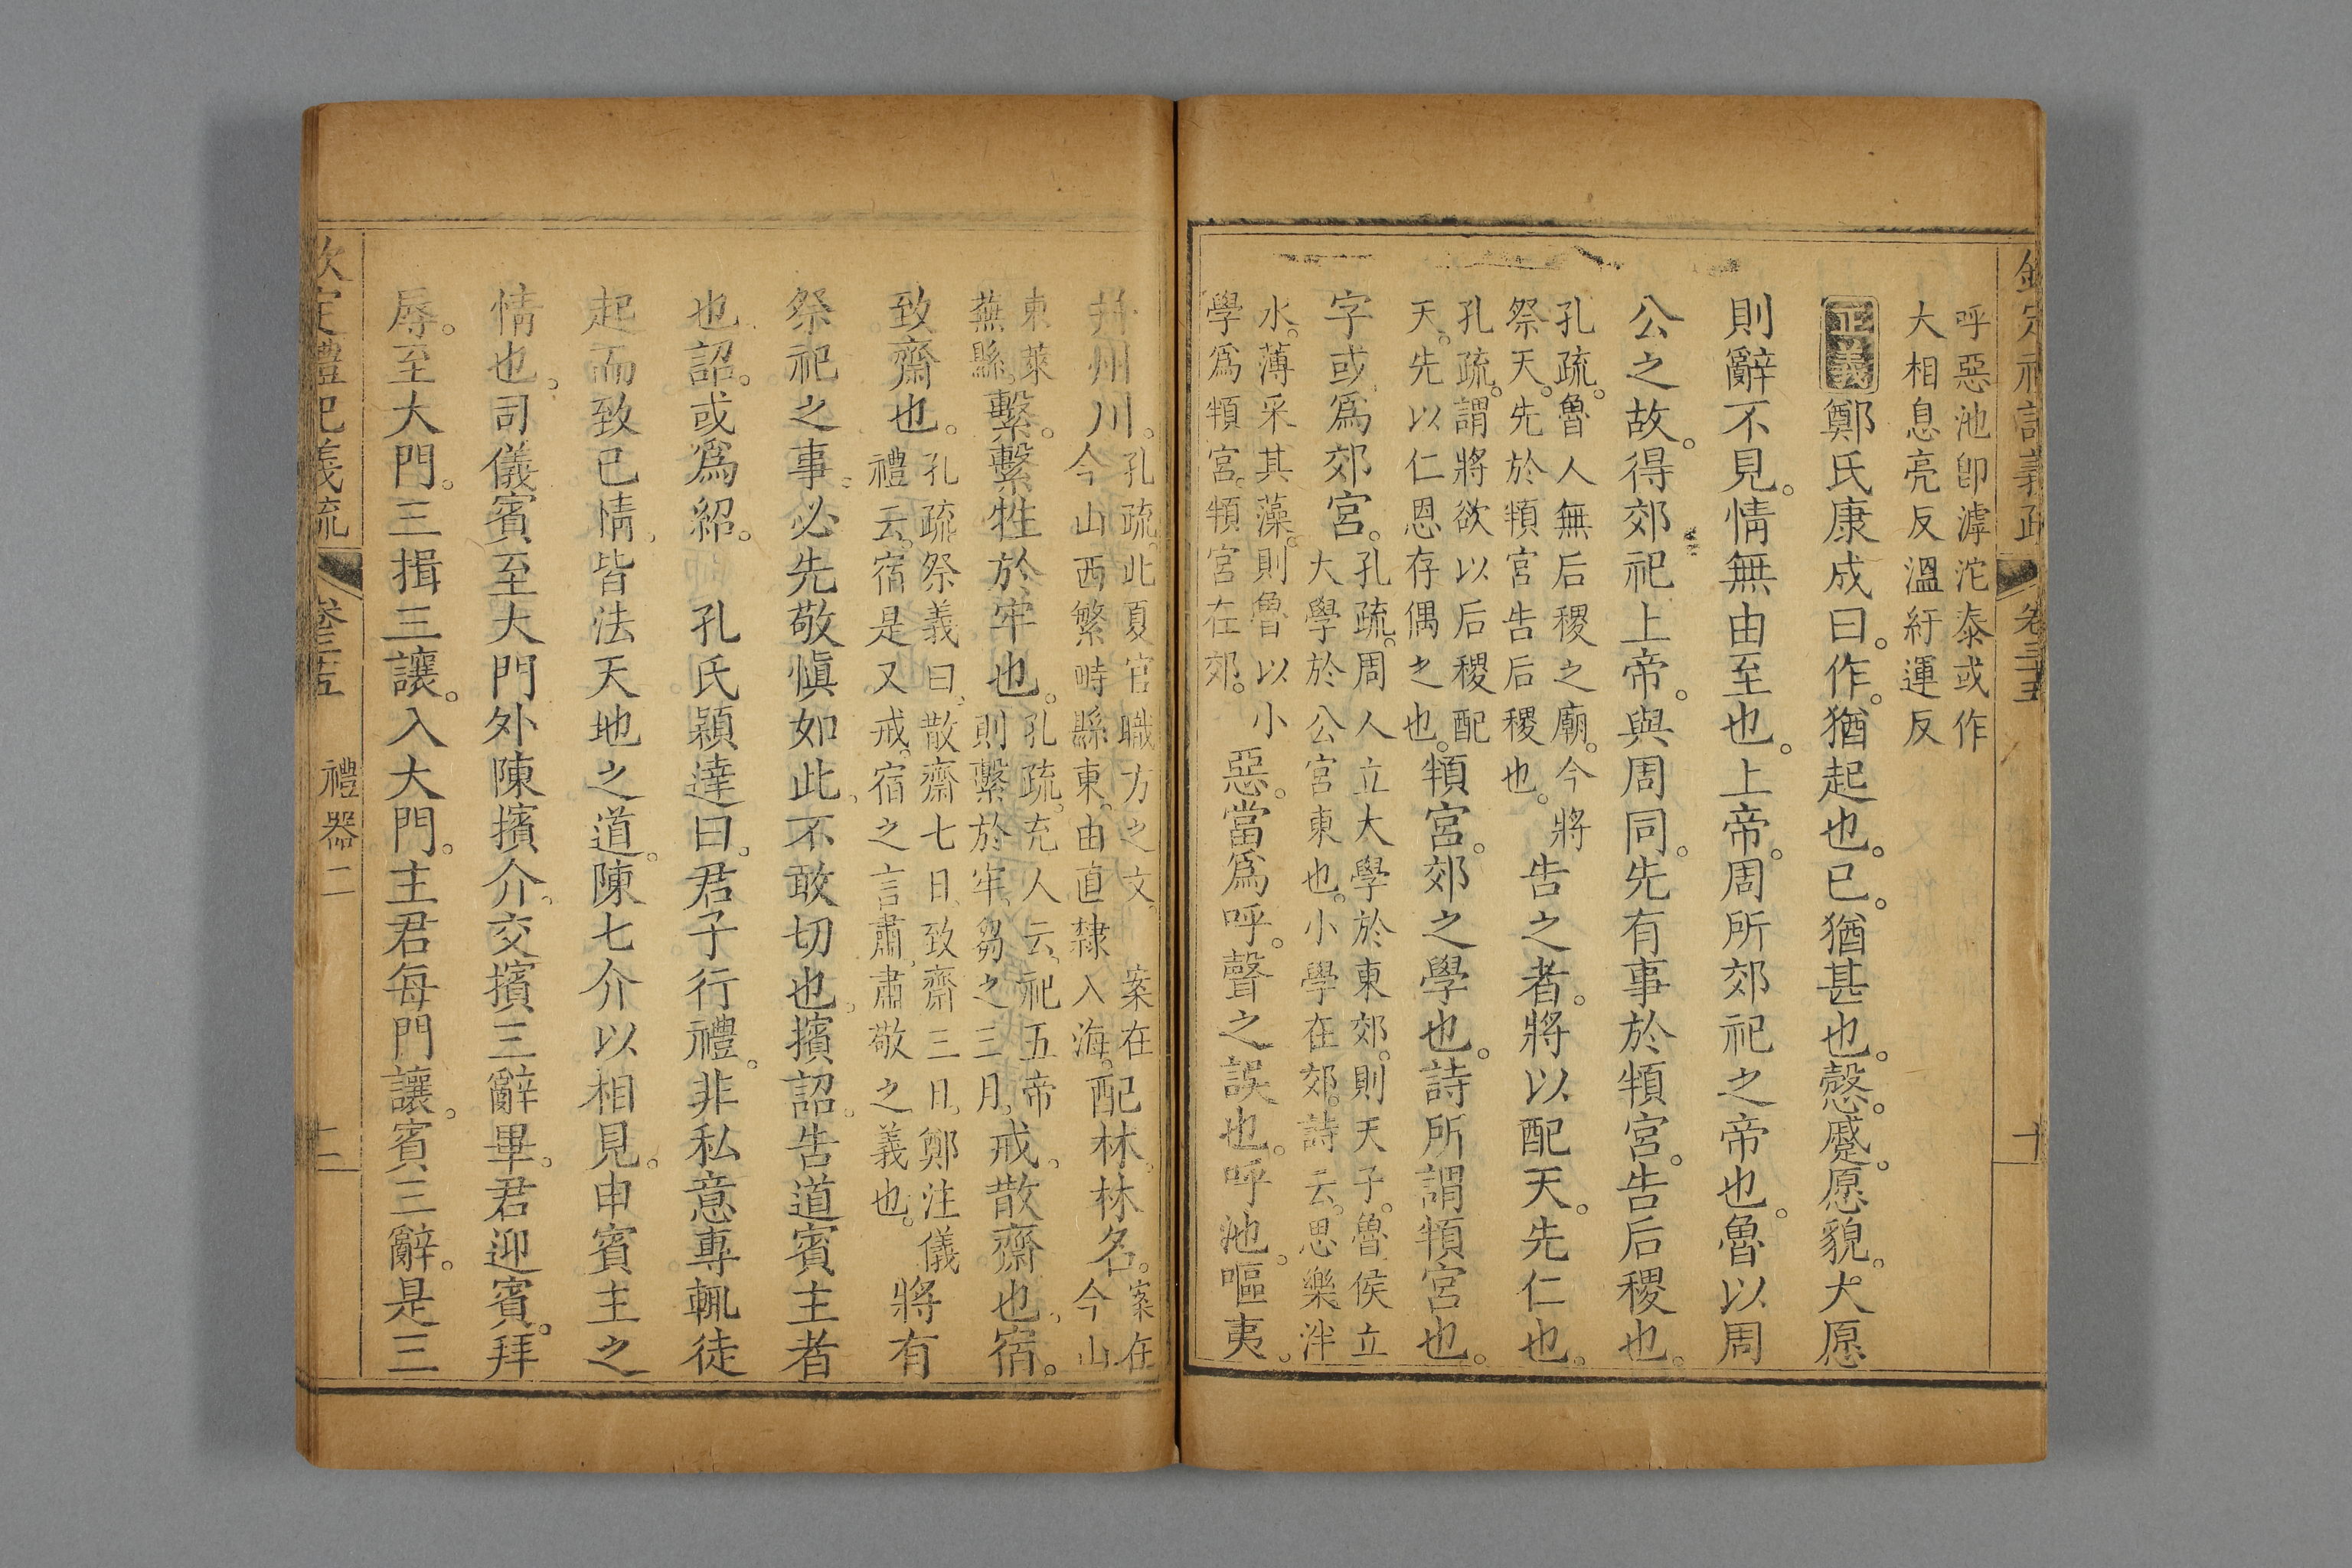 欽定禮記義疏 卷三十五 十
呼惡池卽滹沱泰或作
大相息亮反溫紆運反
正義 鄭氏康成曰。作。猶起也。已。猶甚也。愨。蹙。愿貌。大愿
則辭不見。情無由至也。上帝。周所郊祀之帝也。魯以周
公之故。得郊祀上帝。與周同。先有事於頖宮。告后稷也。
孔疏。魯人無后稷之廟。今將
祭天。先於頖宮告后稷也。
告之者。將以配天。先仁也。
孔疏。謂將欲以后稷配
天。先以仁恩存偶之也。
頖宮。郊之學也。詩所謂頖宮也。
字或爲郊宮。
孔疏。周人立大學於東郊。則天子。魯侯立
大學於公宮東也。小學在郊。詩云。思樂泮
水。薄采其藻。則魯以小
學爲頖宮。頖宮在郊。
惡。當爲呼。聲之誤也。呼池。嘔夷。
幷州川。
孔疏。此夏官職方之文。 案在
今山西繁時縣東。由直隸入海。
配林。林名。
案在
今山
東萊
蕪縣。
繫。繫牲於牢也。
孔疏。充人云。祀五帝
則繫於牢。芻之三月。
戒。散齋也。宿。
致齋也。
孔疏祭義曰。散齋七日。致齋三日。鄭注儀
禮云。宿是又戒。宿之言肅。肅敬之義也。
將有
祭祀之事。必先敬愼如此。不敢切也。擯詔。告道賓主者
也。詔。或爲紹。 孔氏穎達曰。君子行禮。非私意專輒徒
起而致已情。皆法天地之道。陳七介以相見。申賓主之
情也。司儀賓至大門外陳擯介。交擯三辭畢。君迎賓。拜
辱。至大門。三揖三讓。入大門。主君每門讓。賓三辭。是三
欽定禮記義疏 卷三十五 禮器二 十二